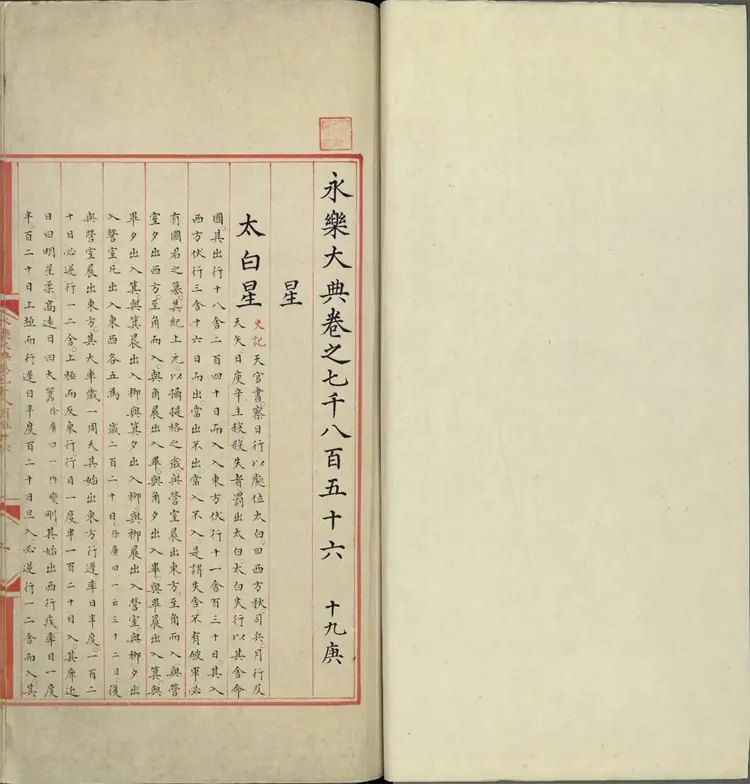 永樂大典卷之七千八百五十六 十九庚
星
太白星
史記天官書察日行以處位太白曰西方秋司兵月行及
天矢日庚辛主殺殺失者罰出太白太白失行以其舍命
國其出行十八舍二百四十日而入入東方伏行十一舍百三十日其入
西方伏行三舍十六日而出當出不出當入不入是謂失舍不有破軍必
有國君之篡其紀上元以攝提格之歲與營室晨出東方至角而入與營
室夕出西方至角而入與角晨出入畢與角夕出入畢與畢晨出入箕與
畢夕出入箕與箕晨出入柳與箕夕出入柳與柳晨出入營室與柳夕出
入營室凡出入東西各五為 歲二百二十日徐廣曰一云三十二日復
與營室晨出東方其大率歲一周天其始出東方行遲率日半度一百二
十日必逆行一二舍上極而反東行行日一度半一百二十日入其庳近
日曰明星柔高遠日曰大囂徐廣曰一作變剛其始出西行疾率日一度
半百二十日上極而行遲日半度百二十日旦入必逆行一二舍而入其